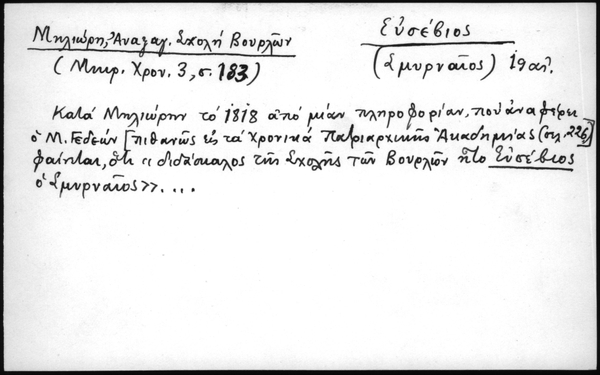 Μηλιώρη, Ἀναξαγ. Σχολή Βουρλῶν
(Μικρ. Χρον. 3, σ. 183)
Εὐσέβιος
(Σμυρναῖος) 19 αἰ.
Κατά Μηλιώρην τό 1818 ἀπό μίαν πληροφορίαν, πού ἀναφέρει
ὁ Μ. Γεδεών [πιθανῶς εἰς τά Χρονικά Πατριαρχικῆς Ἀκαδημίας (σελ. 226)]
φαίνεται, ὅτι «διδάσκαλος τῆς Σχολῆς τῶν Βουρλῶν ἦτο Εὐσέβιος
ὁ Σμυρναῖος»....